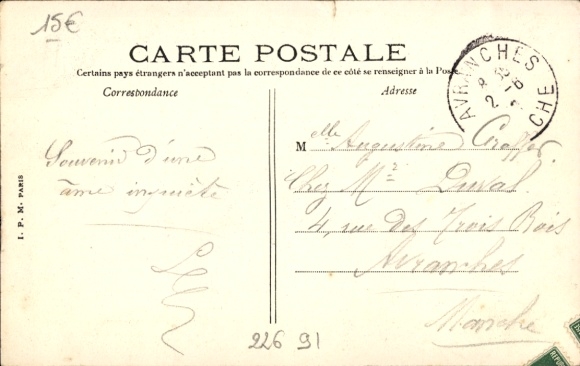 15€
CARTE POSTALE
Certains pays étrangers n'acceptant pas la correspondance de ce côté se renseigner à la Poste
Correspondance
Adresse
AVRANCHES
CHE
Souvenir d'une
âme inquiète
Melle Augustine
Chez Mr Duval
4, rue des Trois Rois
Avranches
Manche
I. P. M. PARIS
226 91